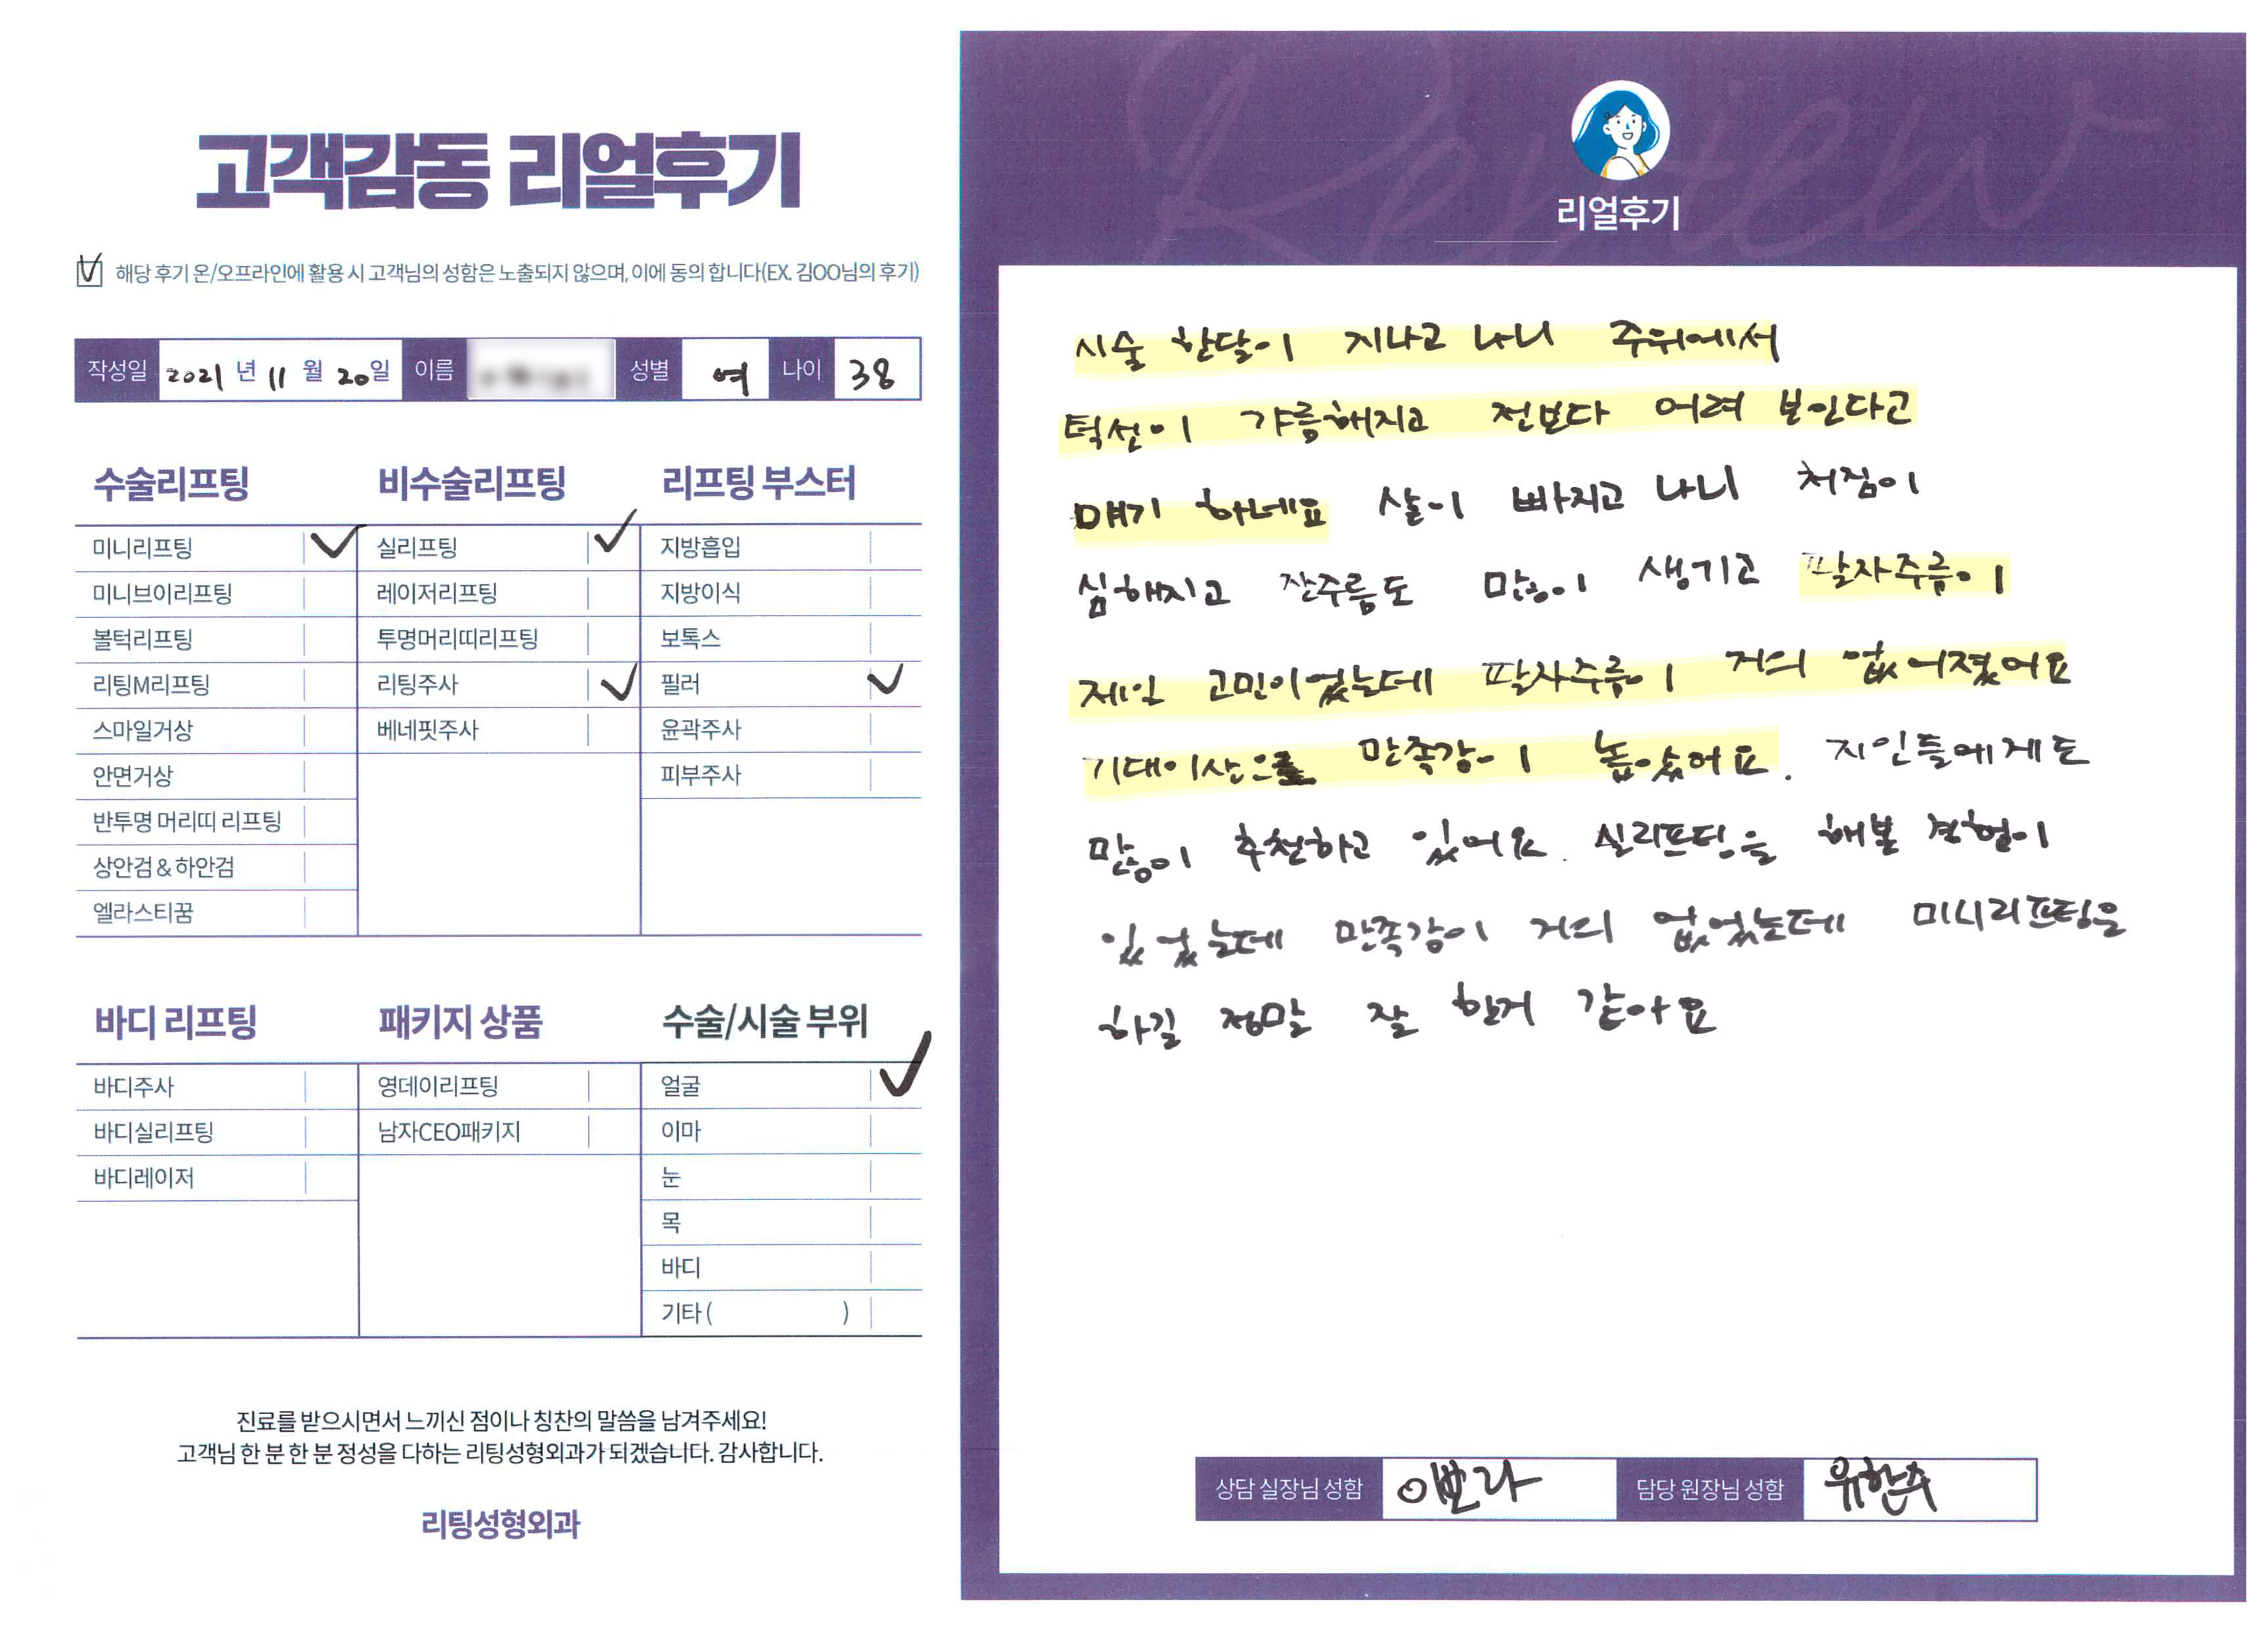 고객감동 리얼후기
해당 후기 온/오프라인에 활용 시 고객님의 성함은 노출되지 않으며, 이에 동의 합니다(EX. 김OO님의 후기)
작성일 2021 년 11 월 20 일 이름 성별 여 나이 38
수술리프팅 비수술리프팅 리프팅 부스터
미니리프팅 실리프팅 지방흡입
미니브이리프팅 레이저리프팅 지방이식
볼턱리프팅 투명머리띠리프팅 보톡스
리팅M리프팅 리팅주사 필러
스마일거상 베네핏주사 윤곽주사
안면거상 피부주사
반투명 머리띠 리프팅
상안검 & 하안검
엘라스티꿈
바디 리프팅 패키지 상품 수술/시술 부위
바디주사 영데이리프팅 얼굴
바디실리프팅 남자CEO패키지 이마
바디레이저 눈
목
바디
기타 ( )
진료를 받으시면서 느끼신 점이나 칭찬의 말씀을 남겨주세요!
고객님 한 분 한 분 정성을 다하는 리팅성형외과가 되겠습니다. 감사합니다.
리팅성형외과
Review
리얼후기
시술 한달이 지나고 나니 주위에서
턱선이 갸름해지고 전보다 어려 보인다고
얘기 하네요 살이 빠지고 나니 처짐이
심해지고 잔주름도 많이 생기고 팔자주름이
제일 고민이었는데 팔자주름이 거의 없어졌어요
기대이상으로 만족감이 높았어요. 지인들에게도
많이 추천하고 있어요. 실리프팅을 해본 경험이
있었는데 만족감이 거의 없었는데 미니리프팅을
하길 정말 잘 한거 같아요
상담 실장님 성함 이보라 담당 원장님 성함 유한수